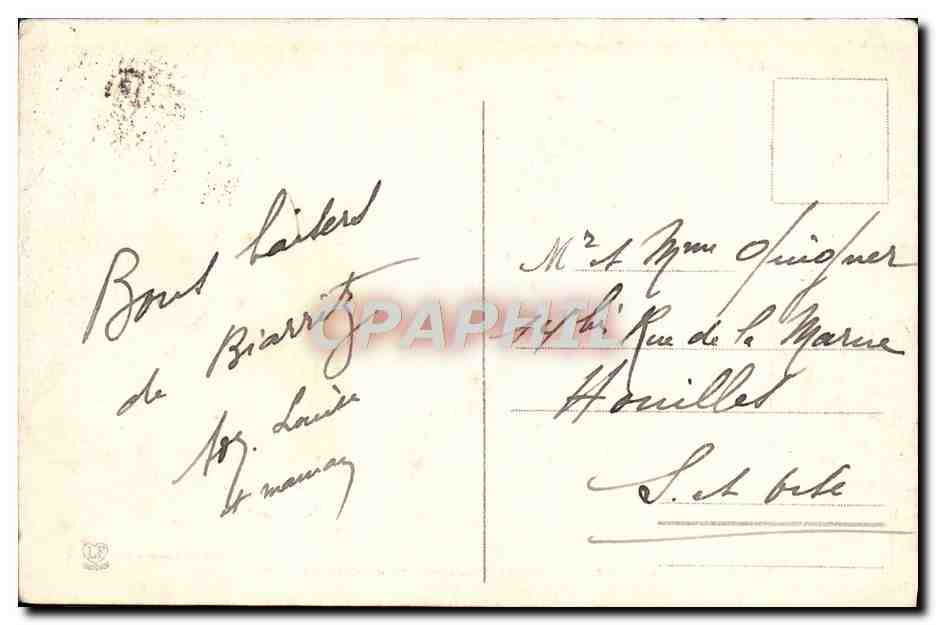 Bons baisers
de Biarritz
Louise
et maman
Mr et Mme
bis Rue de la Marne
Houilles
S. et Oise
CPAPHIL
LF